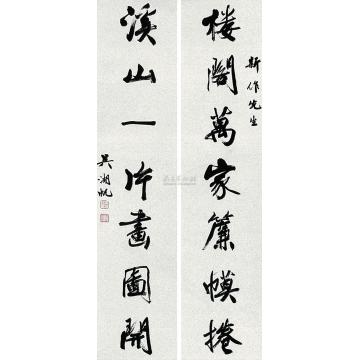 新作先生
楼閣萬家簾幙捲
溪山一片畫圖開
吴湖帆